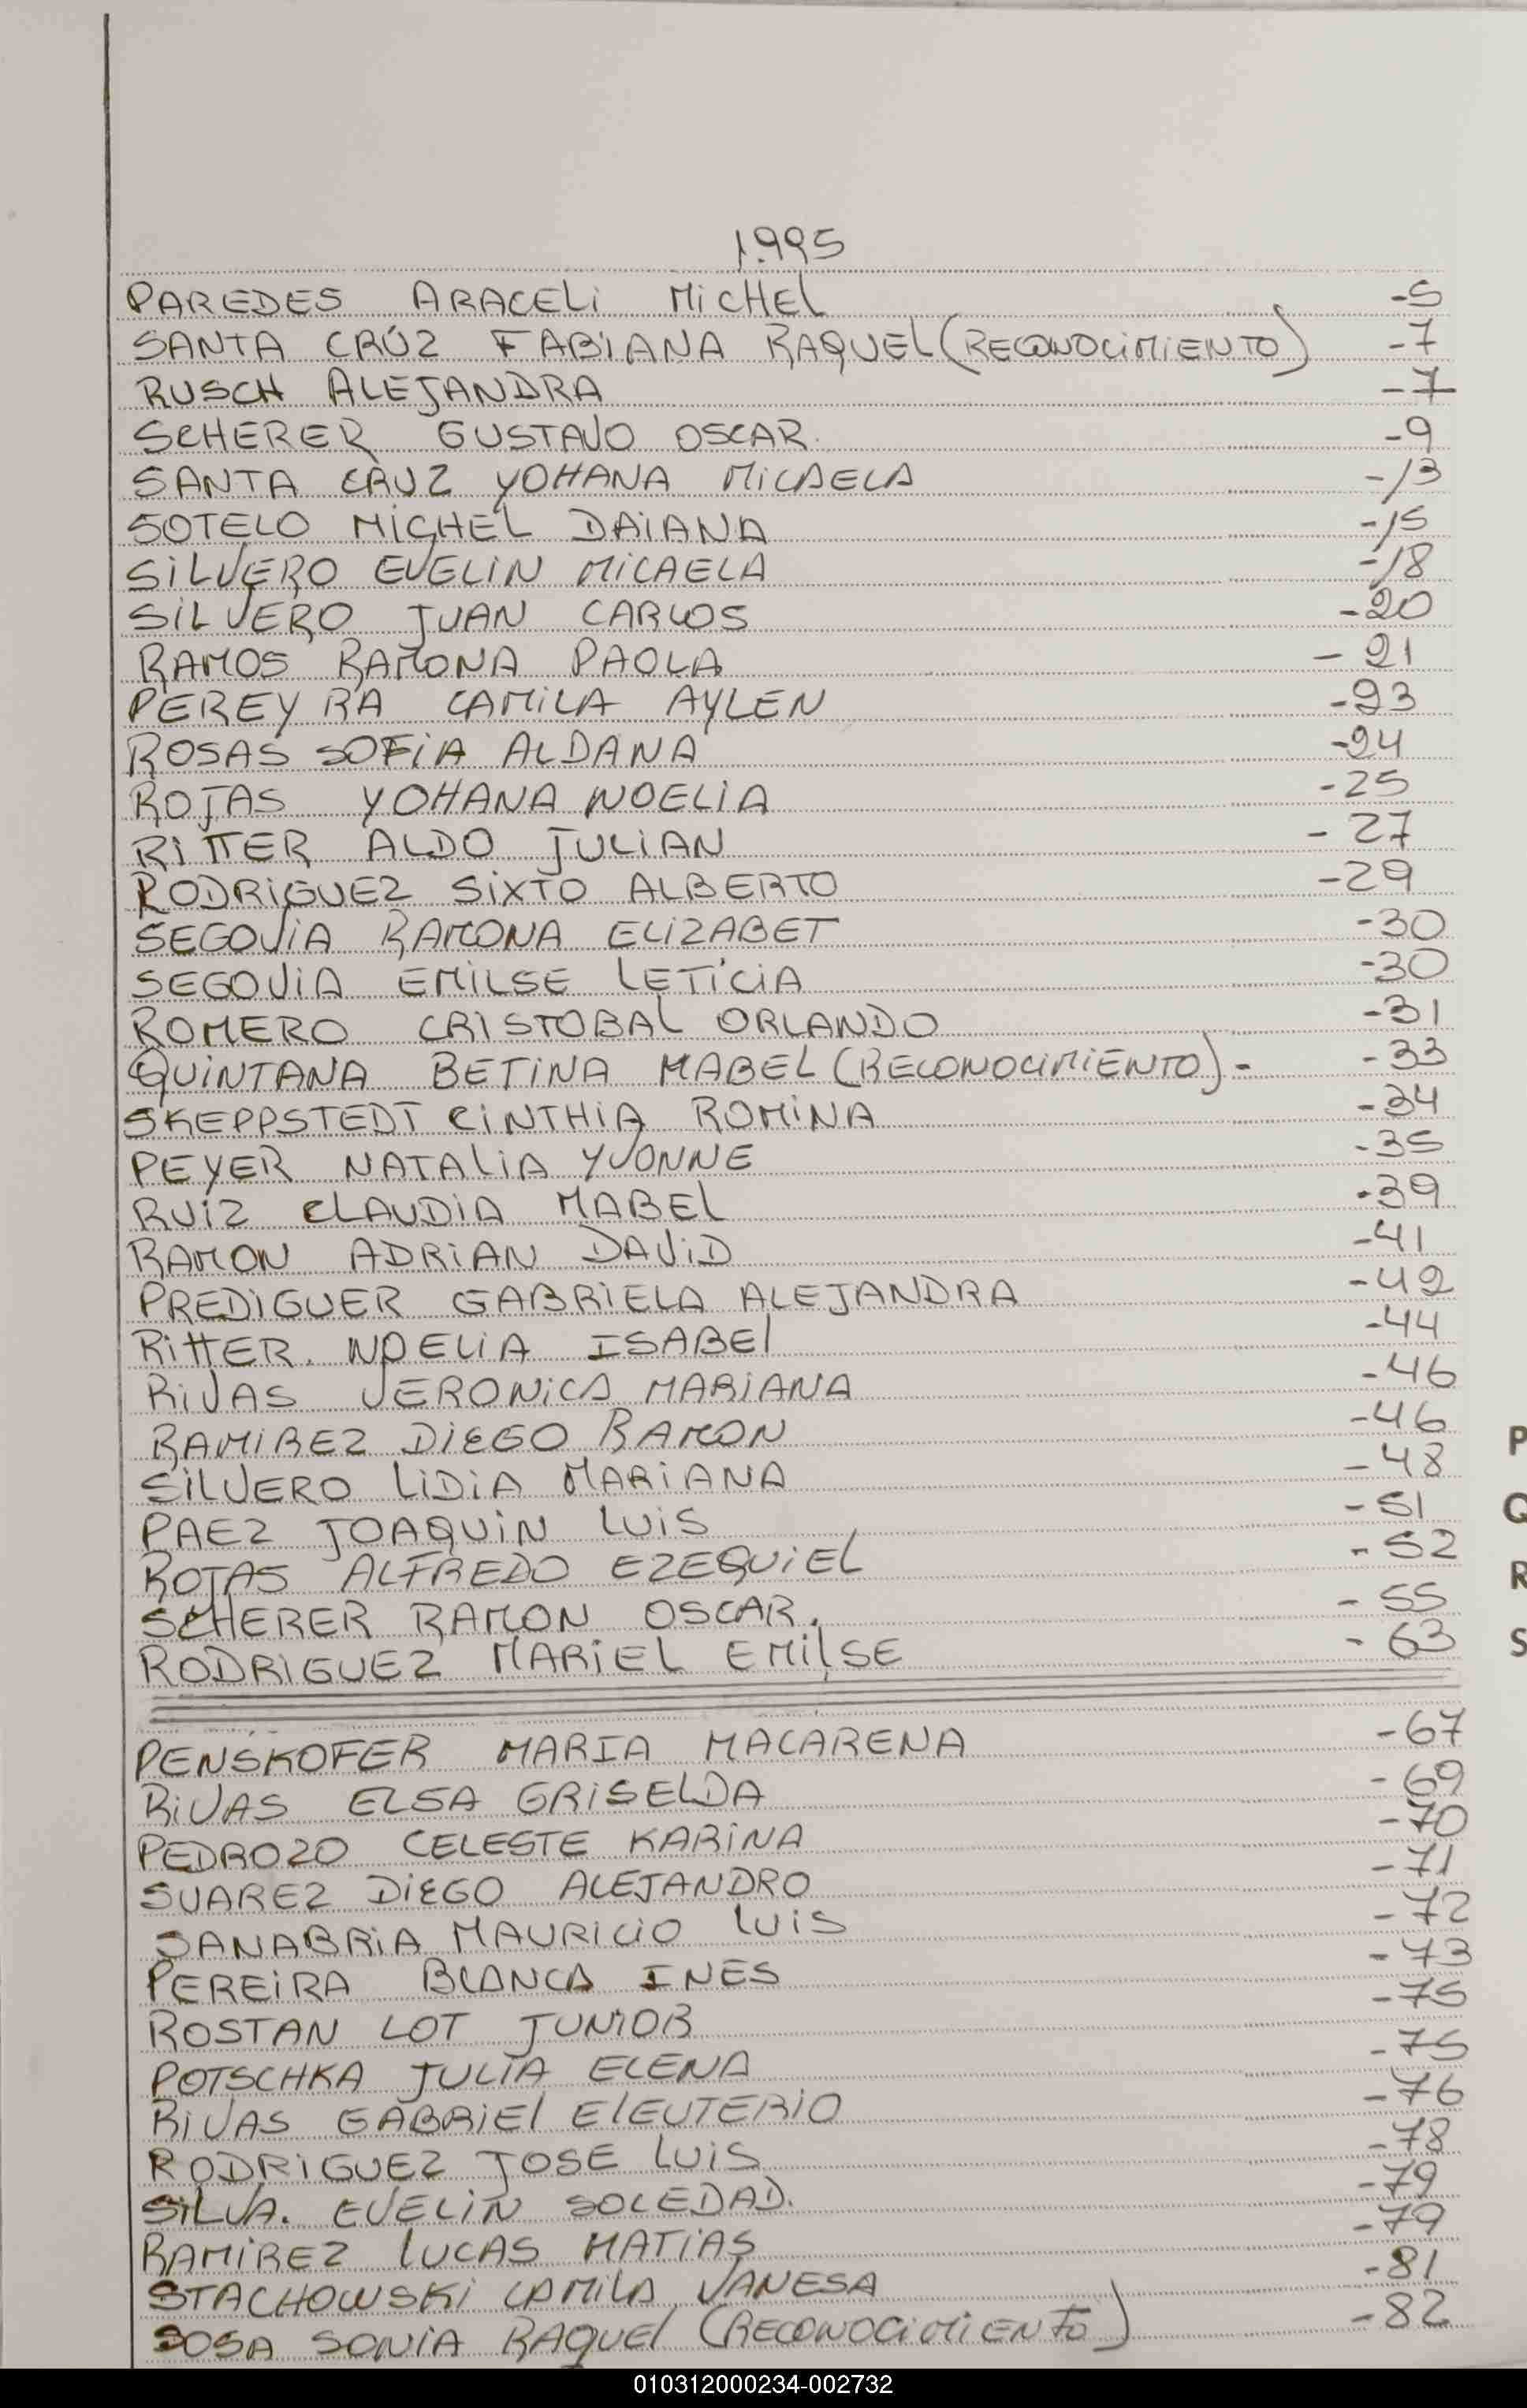 1.995
PAREDES ARACELI MICHEL -5
SANTA CRÚZ FABIANA RAQUEL (RECONOCIMIENTO) -7
RUSCH ALEJANDRA -7
SCHERER GUSTAVO OSCAR. -9
SANTA CRUZ YOHANA MICAELA -13
SOTELO MICHEL DAIANA -15
SILVERO EVELIN MICAELA -18
SILVERO JUAN CARLOS -20
RAMOS RAMONA PAOLA - 21
PEREYRA CAMILA AYLEN -23
ROSAS SOFIA ALDANA -24
ROJAS YOHANA NOELIA -25
RITTER ALDO JULIAN - 27
RODRIGUEZ SIXTO ALBERTO -29
SEGOVIA RAMONA ELIZABET -30
SEGOVIA EMILSE LETICIA -30
ROMERO CRISTOBAL ORLANDO -31
QUINTANA BETINA MABEL (RECONOCIMIENTO) - -33
SKEPPSTEDT CINTHIA ROMINA -34
PEYER NATALIA YVONNE -35
RUIZ CLAUDIA MABEL -39
RAMON ADRIAN DAVID -41
PREDIGUER GABRIELA ALEJANDRA -42
RITTER. NOELIA ISABEL -44
RIVAS VERONICA MARIANA -46
RAMIREZ DIEGO RAMON -46
SILVERO LIDIA MARIANA -48
PAEZ JOAQUIN LUIS -51
ROJAS ALFREDO EZEQUIEL -52
SCHERER RAMON OSCAR. - 55
RODRIGUEZ MARIEL EMILSE - 63
PENSKOFER MARIA MACARENA -67
RIVAS ELSA GRISELDA -69
PEDROZO CELESTE KARINA -70
SUAREZ DIEGO ALEJANDRO -71
SANABRIA MAURICIO LUIS -72
PEREIRA BLANCA INES -73
ROSTAN LOT JUNIOR -75
POTSCHKA JULIA ELENA -75
RIVAS GABRIEL ELEUTERIO -76
RODRIGUEZ JOSE LUIS -78
SILVA. EVELIN SOLEDAD. -79
RAMIREZ LUCAS MATIAS -79
STACHOWSKI CAMILA VANESA -81
SOSA SONIA RAQUEL (RECONOCIMIENTO) -82
P
Q
R
S
010312000234-002732